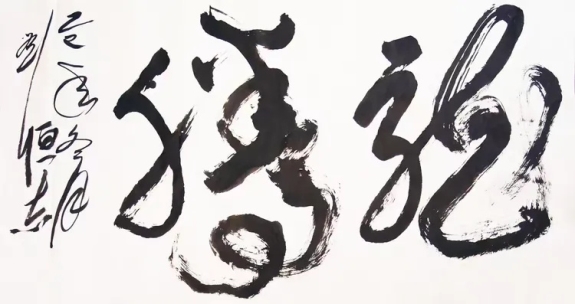 龍騰
冬月
恒志